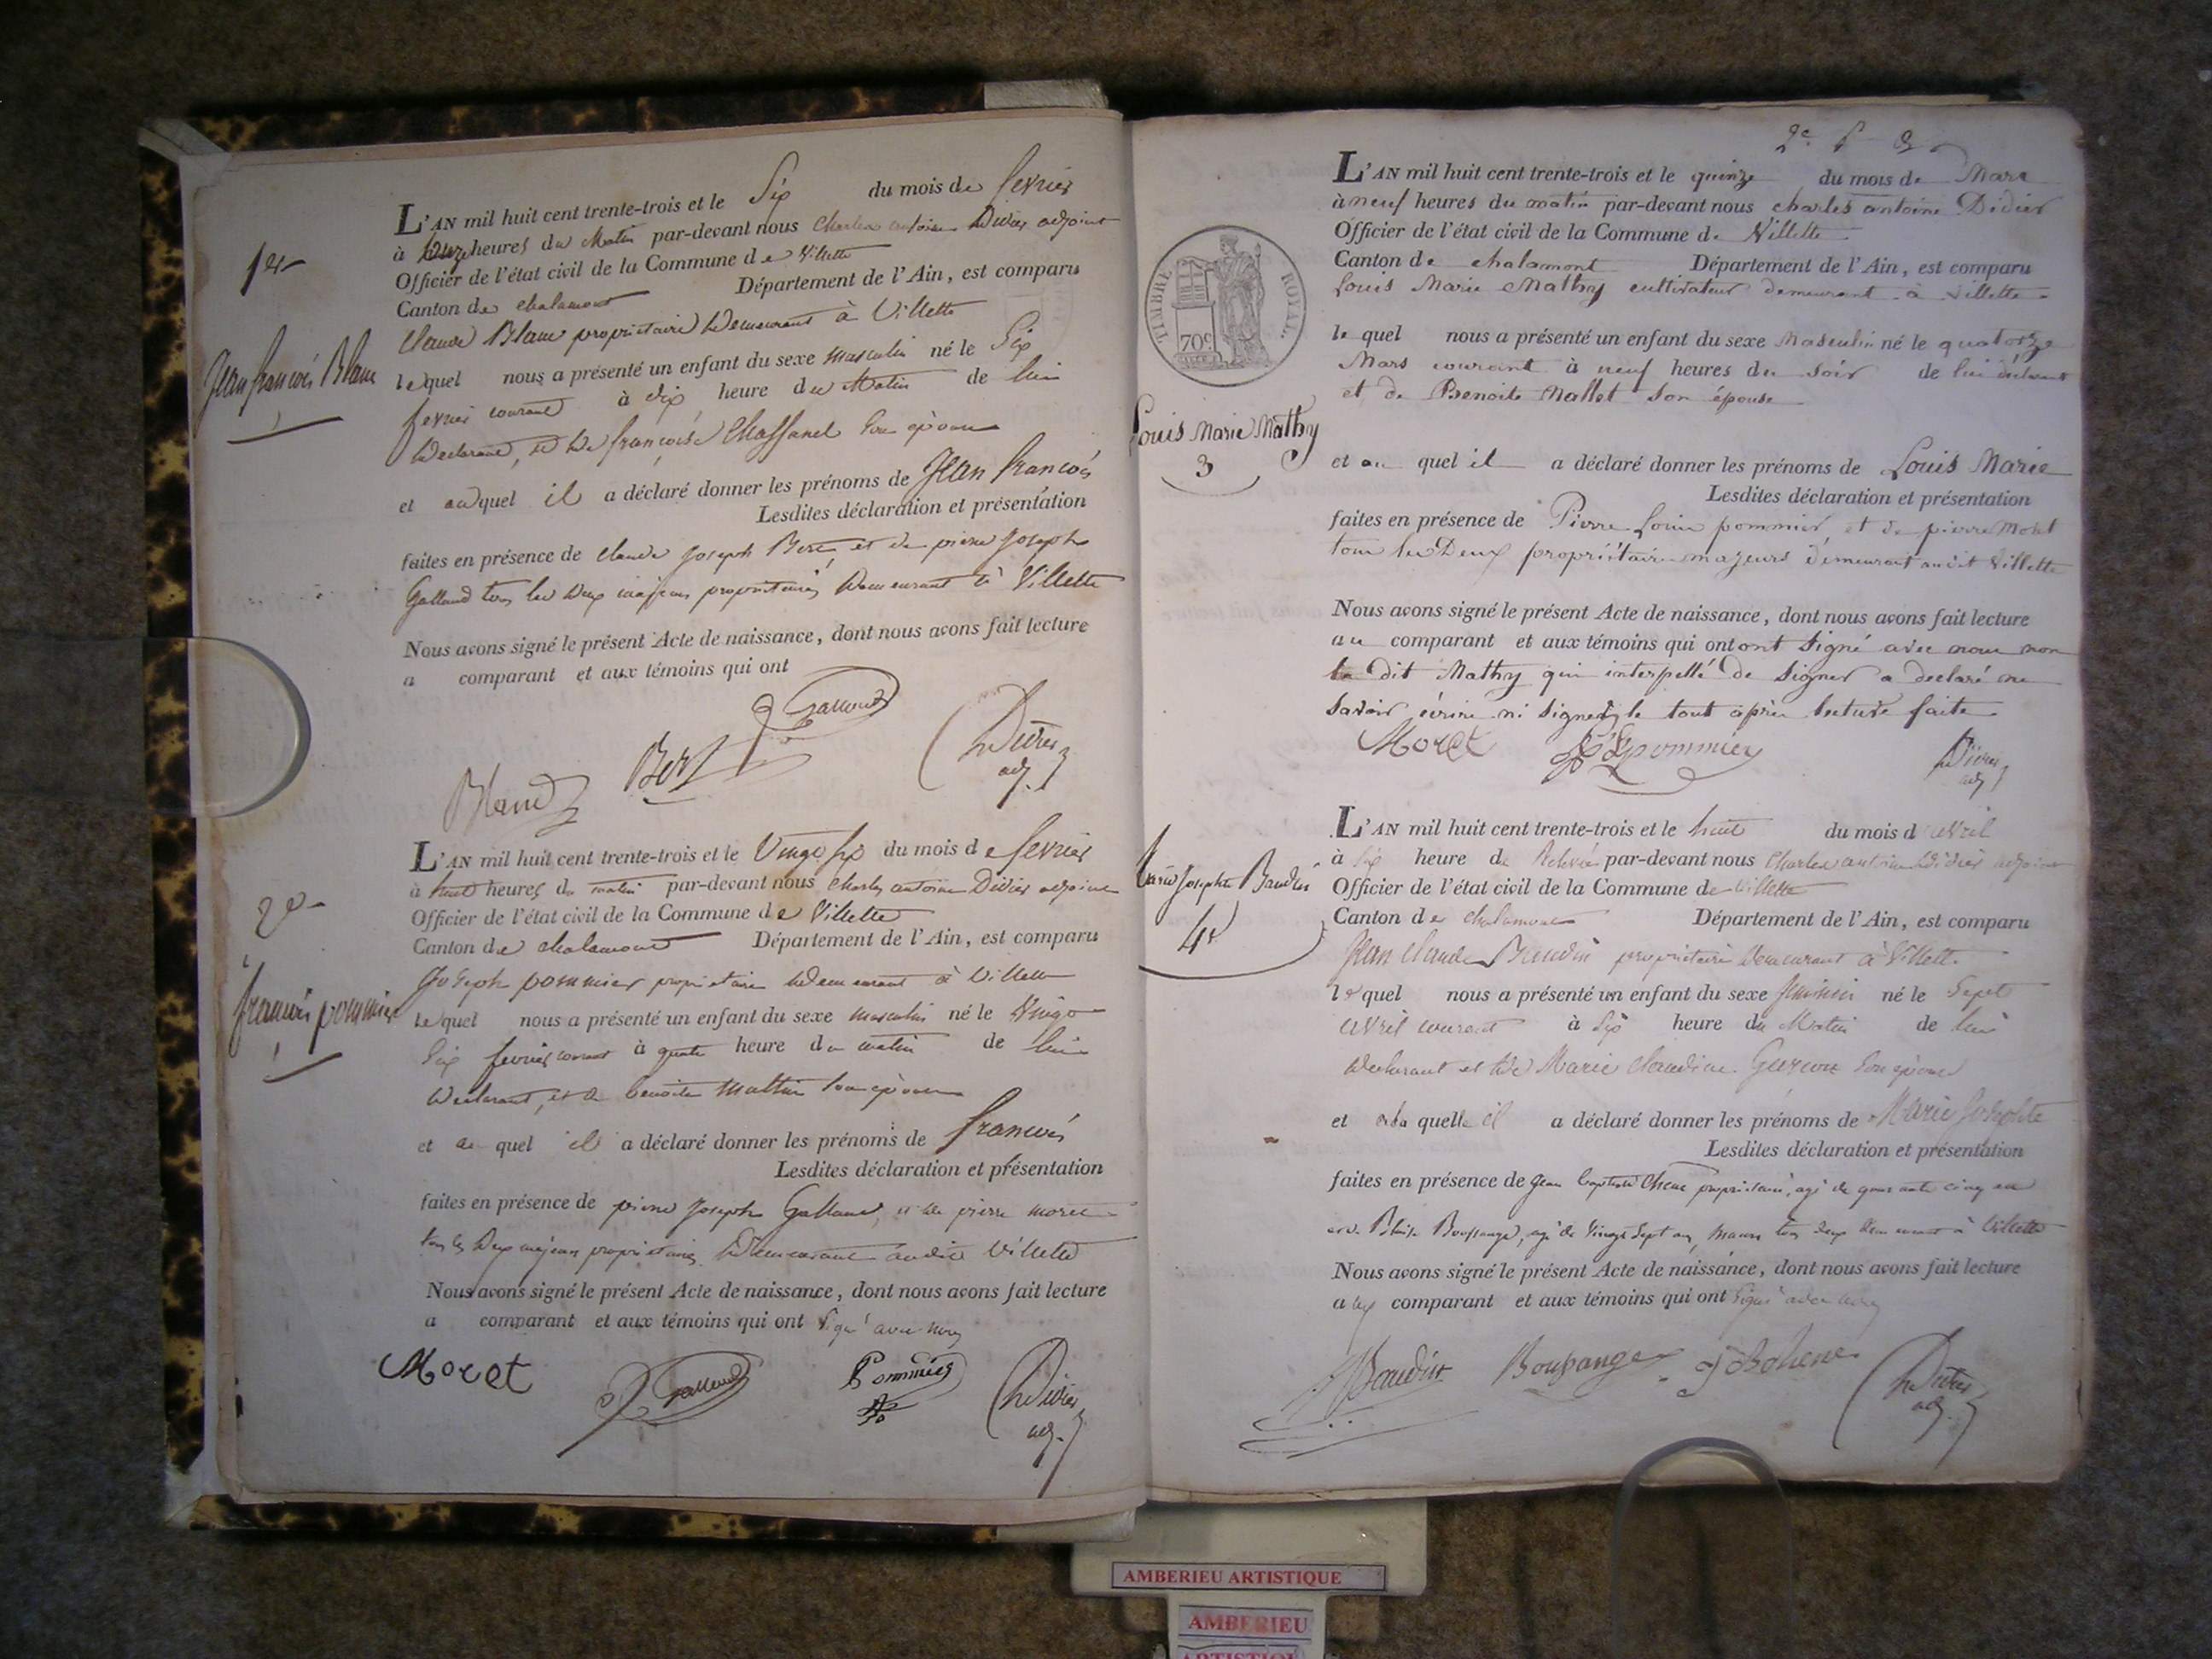 1er
Jean francois Blanc
L'AN mil huit cent trente-trois et le Six du mois de fevrier
à heures du Matin par-devant nous Charles antoine Didier adjoint
Officier de l'état civil de la Commune de Villette
Canton de chalamont Département de l'Ain, est comparu
Claude Blanc propriétaire demeurant à Villette
lequel nous a présenté un enfant du sexe masculin né le Six
fevrier courant à dix heure du Matin de lui
declarant, et de françoise Chaffanel son épouse
et auquel il a déclaré donner les prénoms de Jean francois
Lesdites déclaration et présentation
faites en présence de claude joseph Bert et de pierre joseph
Galland tous les deux majeurs propriétaires demeurant à Villette
Nous avons signé le présent Acte de naissance, dont nous avons fait lecture
a comparant et aux témoins qui ont
Galland
Blanc Bert Didier
adj.
2e
francois pommier
L'AN mil huit cent trente-trois et le Vingt six du mois de fevrier
à huit heures du matin par-devant nous Charles antoine Didier adjoint
Officier de l'état civil de la Commune de Villette
Canton de chalamont Département de l'Ain, est comparu
Joseph pommier propriétaire demeurant à Villette
lequel nous a présenté un enfant du sexe masculin né le Vingt
Six fevrier courant à quatre heure du matin de lui
declarant, et de benoite son épouse
et au quel il a déclaré donner les prénoms de francois
Lesdites déclaration et présentation
faites en présence de pierre joseph Galland, et de pierre moret
tous les deux majeurs propriétaires demeurant audit Villette
Nous avons signé le présent Acte de naissance, dont nous avons fait lecture
a comparant et aux témoins qui ont signé avec nous
Moret Galland Pommier Didier
adj.
2e
TIMBRE ROYAL
70c
Louis Marie Mathy
3
L'AN mil huit cent trente-trois et le quinze du mois de Mars
à neuf heures du matin par-devant nous charles antoine Didier
Officier de l'état civil de la Commune de Villette
Canton de chalamont Département de l'Ain, est comparu
Louis Marie Mathy cultivateur demeurant à villette
le quel nous a présenté un enfant du sexe Masculin né le quatorze
Mars courant à neuf heures du soir de lui déclarant
et de Benoite Mallet son épouse
et au quel il a déclaré donner les prénoms de Louis Marie
Lesdites déclaration et présentation
faites en présence de Pierre Louis pommier et de pierre Moret
tous les Deux propriétaires majeurs demeurant audit Villette
Nous avons signé le présent Acte de naissance, dont nous avons fait lecture
au comparant et aux témoins qui ont ont signé avec nous non
le dit Mathy qui interpellé de signer a declaré ne
savoir écrire ni signer le tout après lecture faite
Moret pommier Didier
adj
Marie Josephte Baudin
4e
L'AN mil huit cent trente-trois et le huit du mois d'avril
à six heure de Relevée par-devant nous Charles antoine Didier adjoint
Officier de l'état civil de la Commune de Villette
Canton de chalamont Département de l'Ain, est comparu
Jean Claude Baudin propriétaire demeurant à Villette
lequel nous a présenté un enfant du sexe feminin né le Sept
avril courant à six heure du Matin de lui
declarant et de Marie Claudine son épouse
et a la quelle il a déclaré donner les prénoms de Marie Josephte
Lesdites déclaration et présentation
faites en présence de jean baptiste propriétaire, agé de quarante cinq ans
et de Boussange, agé de vingt sept ans, tous deux demeurant à Villette
Nous avons signé le présent Acte de naissance, dont nous avons fait lecture
a comparant et aux témoins qui ont signé avec nous
Baudin Boussange Didier
adj.
AMBERIEU ARTISTIQUE
AMBERIEU
ARTISTIQUE